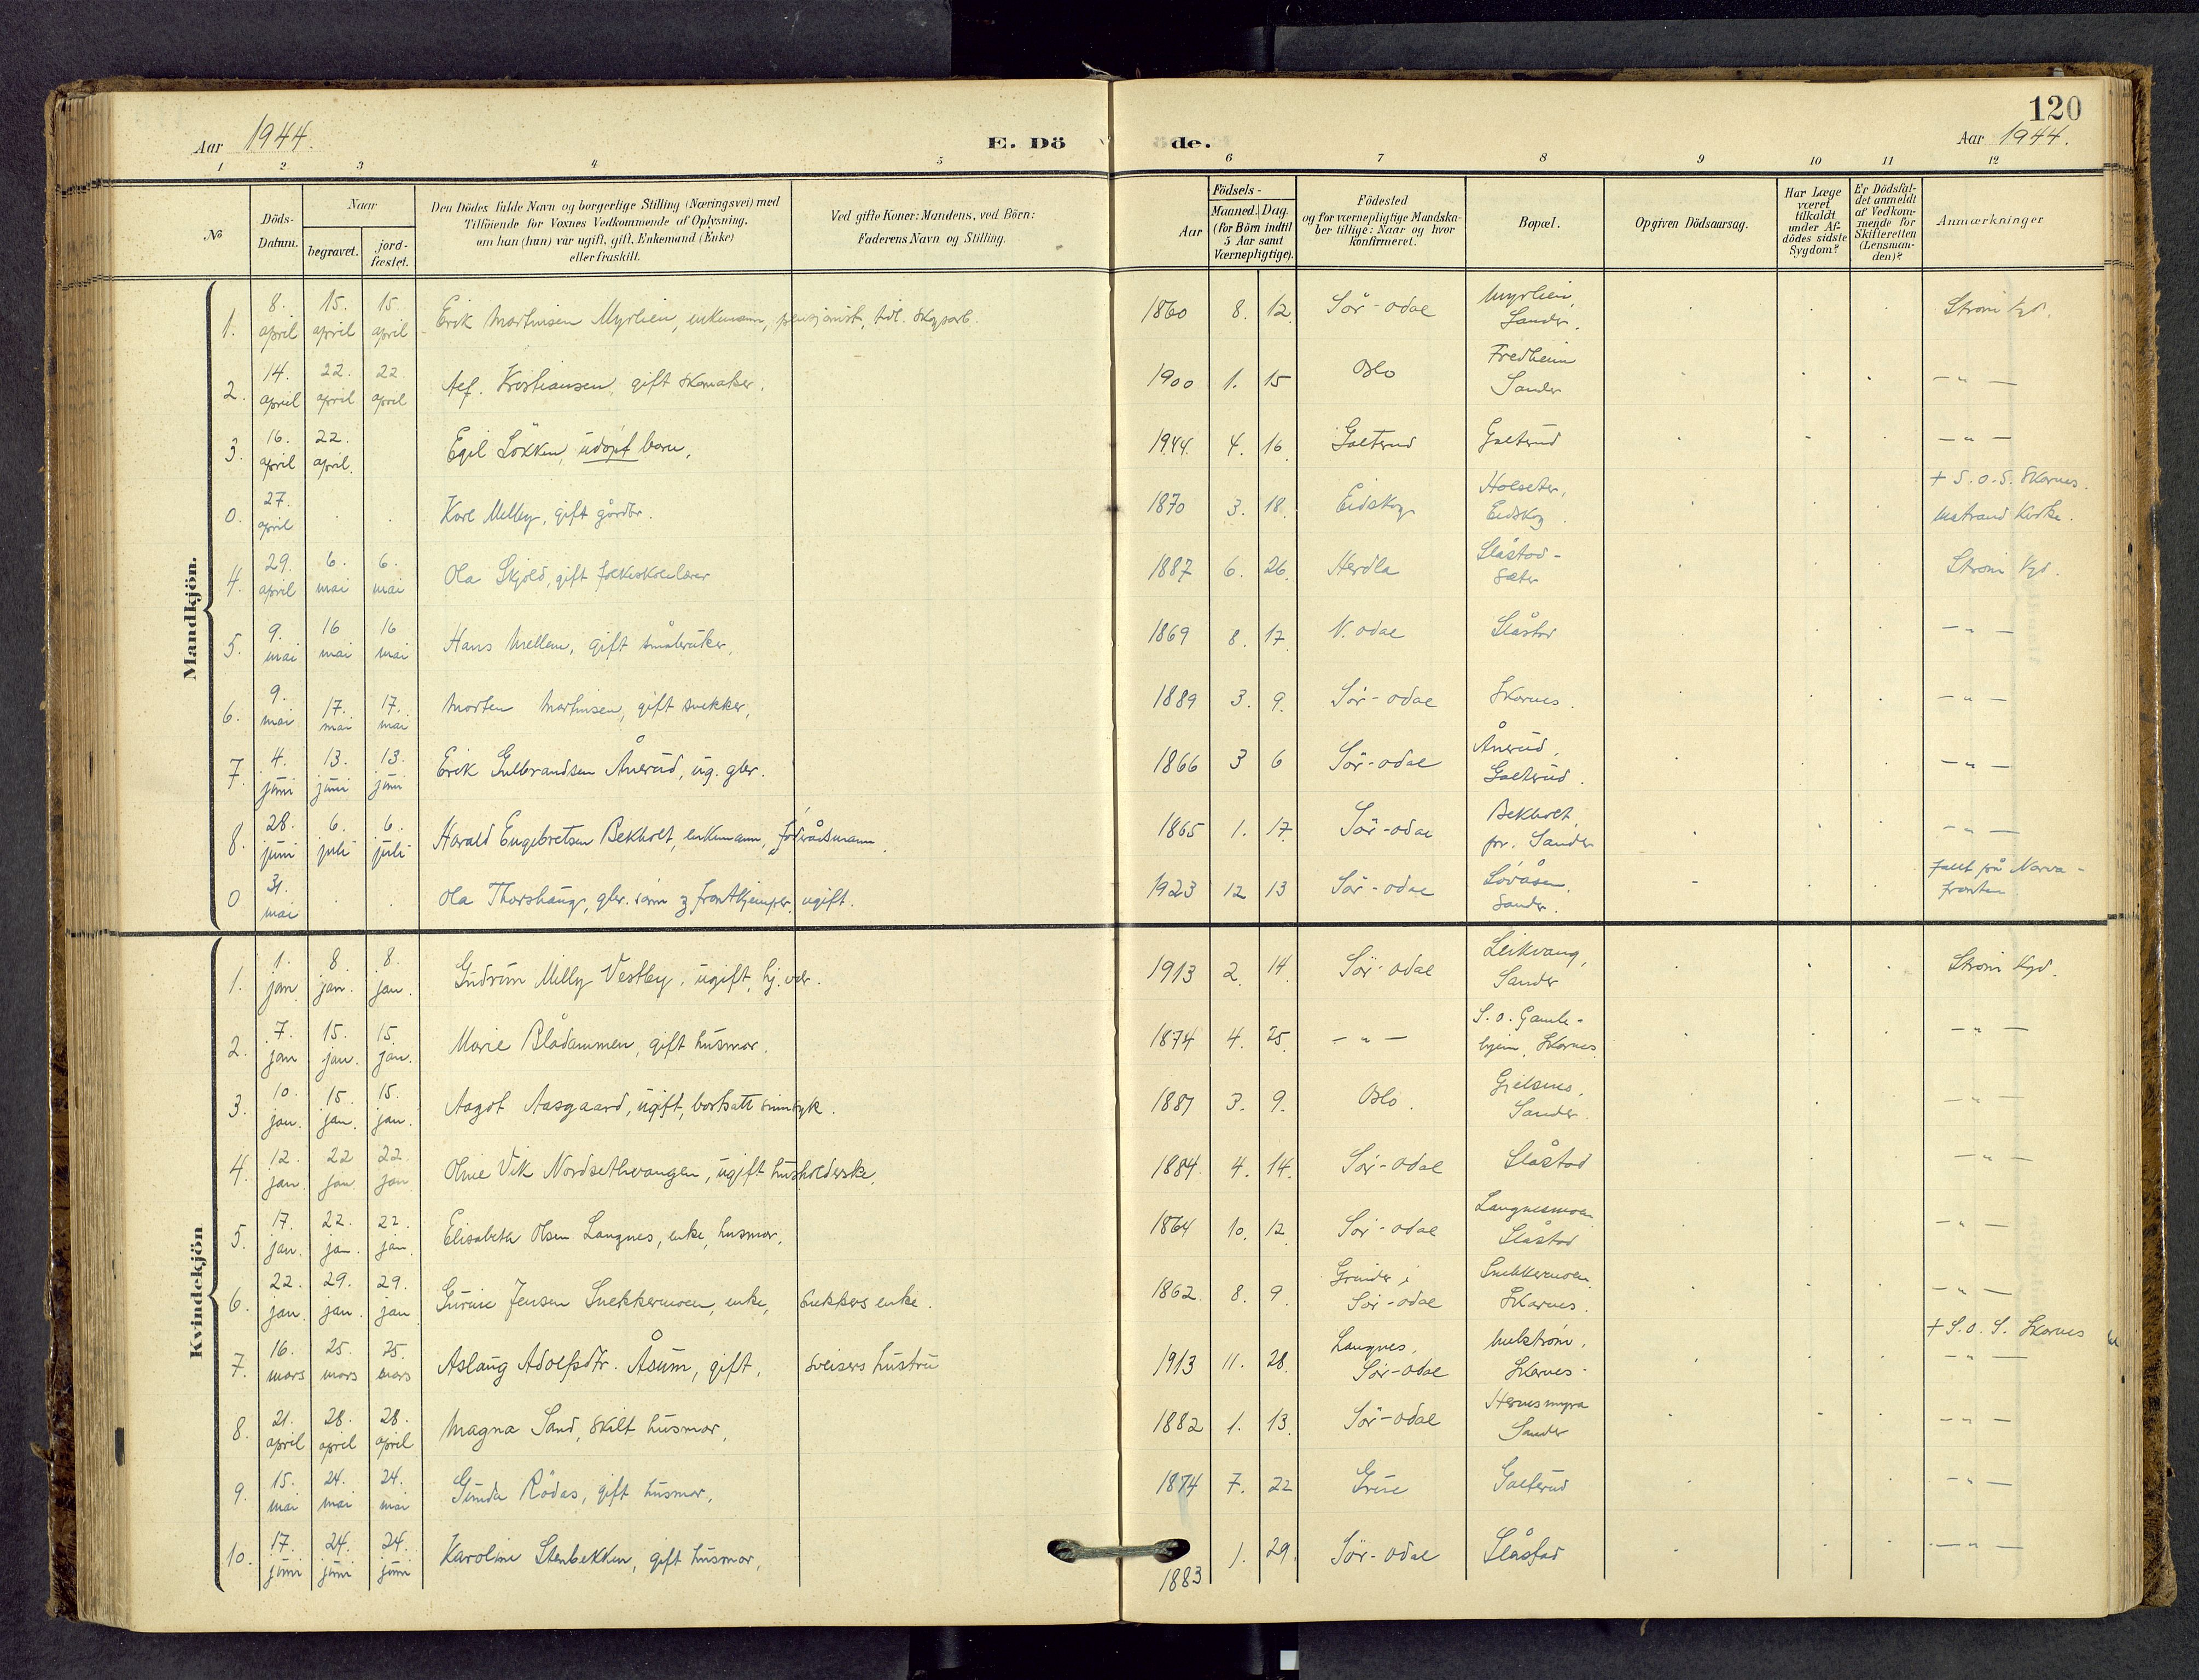 120
Aar 1944.
E. Dö de.
Aar 1944.
1 2 3 4 5 6 7 8 9 10 11 12
No
Döds-
Datum.
Naar
begravet.
jord-
fæstet.
Den Dödes fulde Navn og borgerlige Stilling (Næringsvei) med
Tilföiende for Voxnes Vedkommende af Oplysning,
om han (hun) var ugift, gift, Enkemand (Enke)
eller fraskilt.
Ved gifte Koner: Mandens, ved Börn:
Faderens Navn og Stilling.
Födsels-
Aar
Maaned. Dag.
(for Börn indtil
5 Aar samt
Værnepligtige).
Födested
og for værnepligtige Mandska-
ber tillige: Naar og hvor
konfirmeret.
Bopæl.
Opgiven Dödsaarsag.
Har Læge
været
tilkaldt
under Af-
dödes sidste
Sygdom?
Er Dödsfal-
det anmeldt
af Vedkom-
mende for
Skifteretten
(Lensman-
den)?
Anmærkninger
Mandkjön.
1. 8. april 15. april 15 april Erik Martinsen Myrlien, enkmann, pensjonist, tidl. skogsarb. 1860 8. 12. Sör-odal Myrlien, Sander. Ström kgd.
2. 14. april 22. april 22 april Alf. Kristiansen, gift skomaker. 1900 1. 15 Oslo Fredheim Sander — " —
3. 16. april 22. april. Egil Lökken, udöpt barn. 1944. 4. 16. Galterud Galterud — " —
0. 27. april Karl Melby, gift gårdbr. 1870 3. 18. Eidskog Holseter, Eidskog. + S.O.S. Skarnes. Matrand Kirke.
4. 29. april 6. mai 6. mai Ola Skjold, gift folkeskolelærer 1887 6. 26. Herdla Slåstad-sæter Ström kgd.
5. 9. mai 16 mai 16 mai Hans Mellem, gift småbruker. 1869 8. 17. N. odal Slåstad — " —
6. 9. mai 17. mai 17. mai Morten Martinsen, gift snekker, 1889 3. 9. Sör-odal Skarnes. — " —
7. 4. juni 13. juni 13. juni Erik Gulbrandsen Ånerud, ug. gbr. 1866 3 6 Sör-odal Ånerud, Galterud. — " —
8. 28. juni 6. juli 6. juli Harald Engebretsen Bekholt, enkemann, födrådsmann. 1865 1. 17. Sör-odal Bekholt, pr. Sander — " —
0 31. mai Ola Thorshaug, gbr. sönn & frontkjemper, ugift. 1923 12 13 Sör-odal Lövåsen, Sander. Falt på Narva-fronten
Kvindekjön
1. 1. jan 8. jan. 8. jan. Gudrun Milly Vestby, ugift, hj. vær. 1913 2. 14. Sör-odal Leikvang, Sander Ström kgd.
2. 7. jan 15. jan. 15. jan. Marie Blådammen, gift husmor. 1874 4. 25. — " — S.O. Gamle-hjem, Skarnes. — " —
3. 10. jan. 15. jan. 15. jan. Aagot Aasgaard, ugift, bortsatt sinnsyk. 1887 3. 9. Oslo. Gjelsnes, Sander. — " —
4. 12. jan. 22 jan 22. jan Oline Vik Nordsethvangen, ugift husholderske. 1884. 4. 14. Sör-odal Slåstad — " —
5. 17. jan. 22. jan. 22. jan. Elisabeth Olsen Langnes, enke, husmor. 1864 10. 12. Sör-odal Langnesmoen Slåstad — " —
6. 22. jan. 29. jan. 29. jan Gurine Jensen Snekkermoen, enke, snekkers enke. 1862. 8. 9. Grinder i Sör-odal Snekkermoen. Skarnes. — " —
7. 16. mars 25. mars 25. mars Aslaug Adolfsdtr. Åsum, gift, sveisers hustru 1913 11. 28. Langnes, Sör-odal Melström, Skarnes. + S.O.S. Skarnes — " —
8. 21. april 28. april 28. april Magna Sand, skilt husmor, 1882 1. 13. Sör-odal Hernesmyra Sander — " —
9. 15. mai 24. mai 24. mai Gunda Rödås, gift husmor, 1874 7. 22 Grue Galterud — " —
10. 17. juni 24. juni 24. juni Karoline Stenbekken, gift husmor, 1883 1. 29. Sör-odal Slåstad — " —